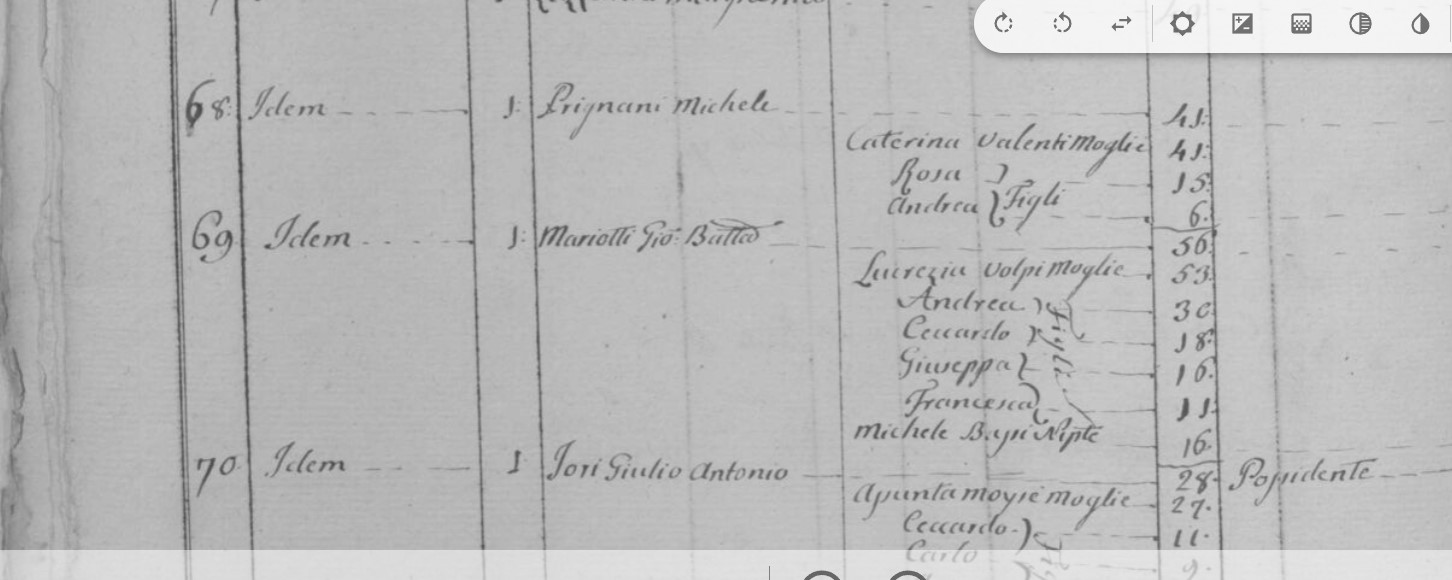 68. Idem 1. Prignani Michele 41.
Caterina Valenti Moglie 41.
Rosa 15
Andrea Figli 6.
69 Idem 1. Mariotti Gio. Batta 56.
Lucrezia Volpi Moglie 53.
Andrea 30
Ceccardo Figli 18.
Giuseppa 16.
Francesca 11
Michele Nipte 16.
70 Idem 1 Jori Giulio Antonio 28. Possidente
Apunta Moysè Moglie 27.
Ceccardo 11.
Carlo 9.